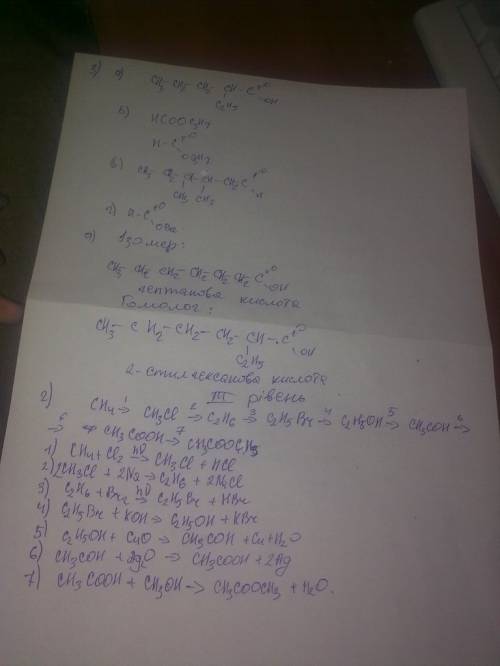 3) а) CH3 - CH2 - CH2 - CH - C =O
C2H5 OH
б) HCOOC3H7
H - C =O
OC3H7
в) CH3 - CH2 - CH - CH - CH2 C =O
CH3 CH3 H
г) H - C =O
д) Ізомер:
CH3 - CH2 - CH2 - CH2 - CH2 - CH2 C =O
OH
гептанова кислота
Гомолог:
CH3 - CH2 - CH2 - CH2 - CH - C =O
C2H5 OH
2-етилгексанова кислота
III рівень
2) CH4 1→ CH3Cl 2→ C2H6 3→ C2H5Br 4→ C2H5OH 5→ CH3COH 6→
6→ CH3COOH 7→ CH3COOCH3
1) CH4 + Cl2 hν→ CH3Cl + HCl
2) 2CH3Cl + 2Na → C2H6 + 2NaCl
3) C2H6 + Br2 hν→ C2H5Br + HBr
4) C2H5Br + KOH → C2H5OH + KBr
5) C2H5OH + CuO → CH3COH + Cu + H2O
6) CH3COH + Ag2O → CH3COOH + 2Ag
7) CH3COOH + CH3OH → CH3COOCH3 + H2O.